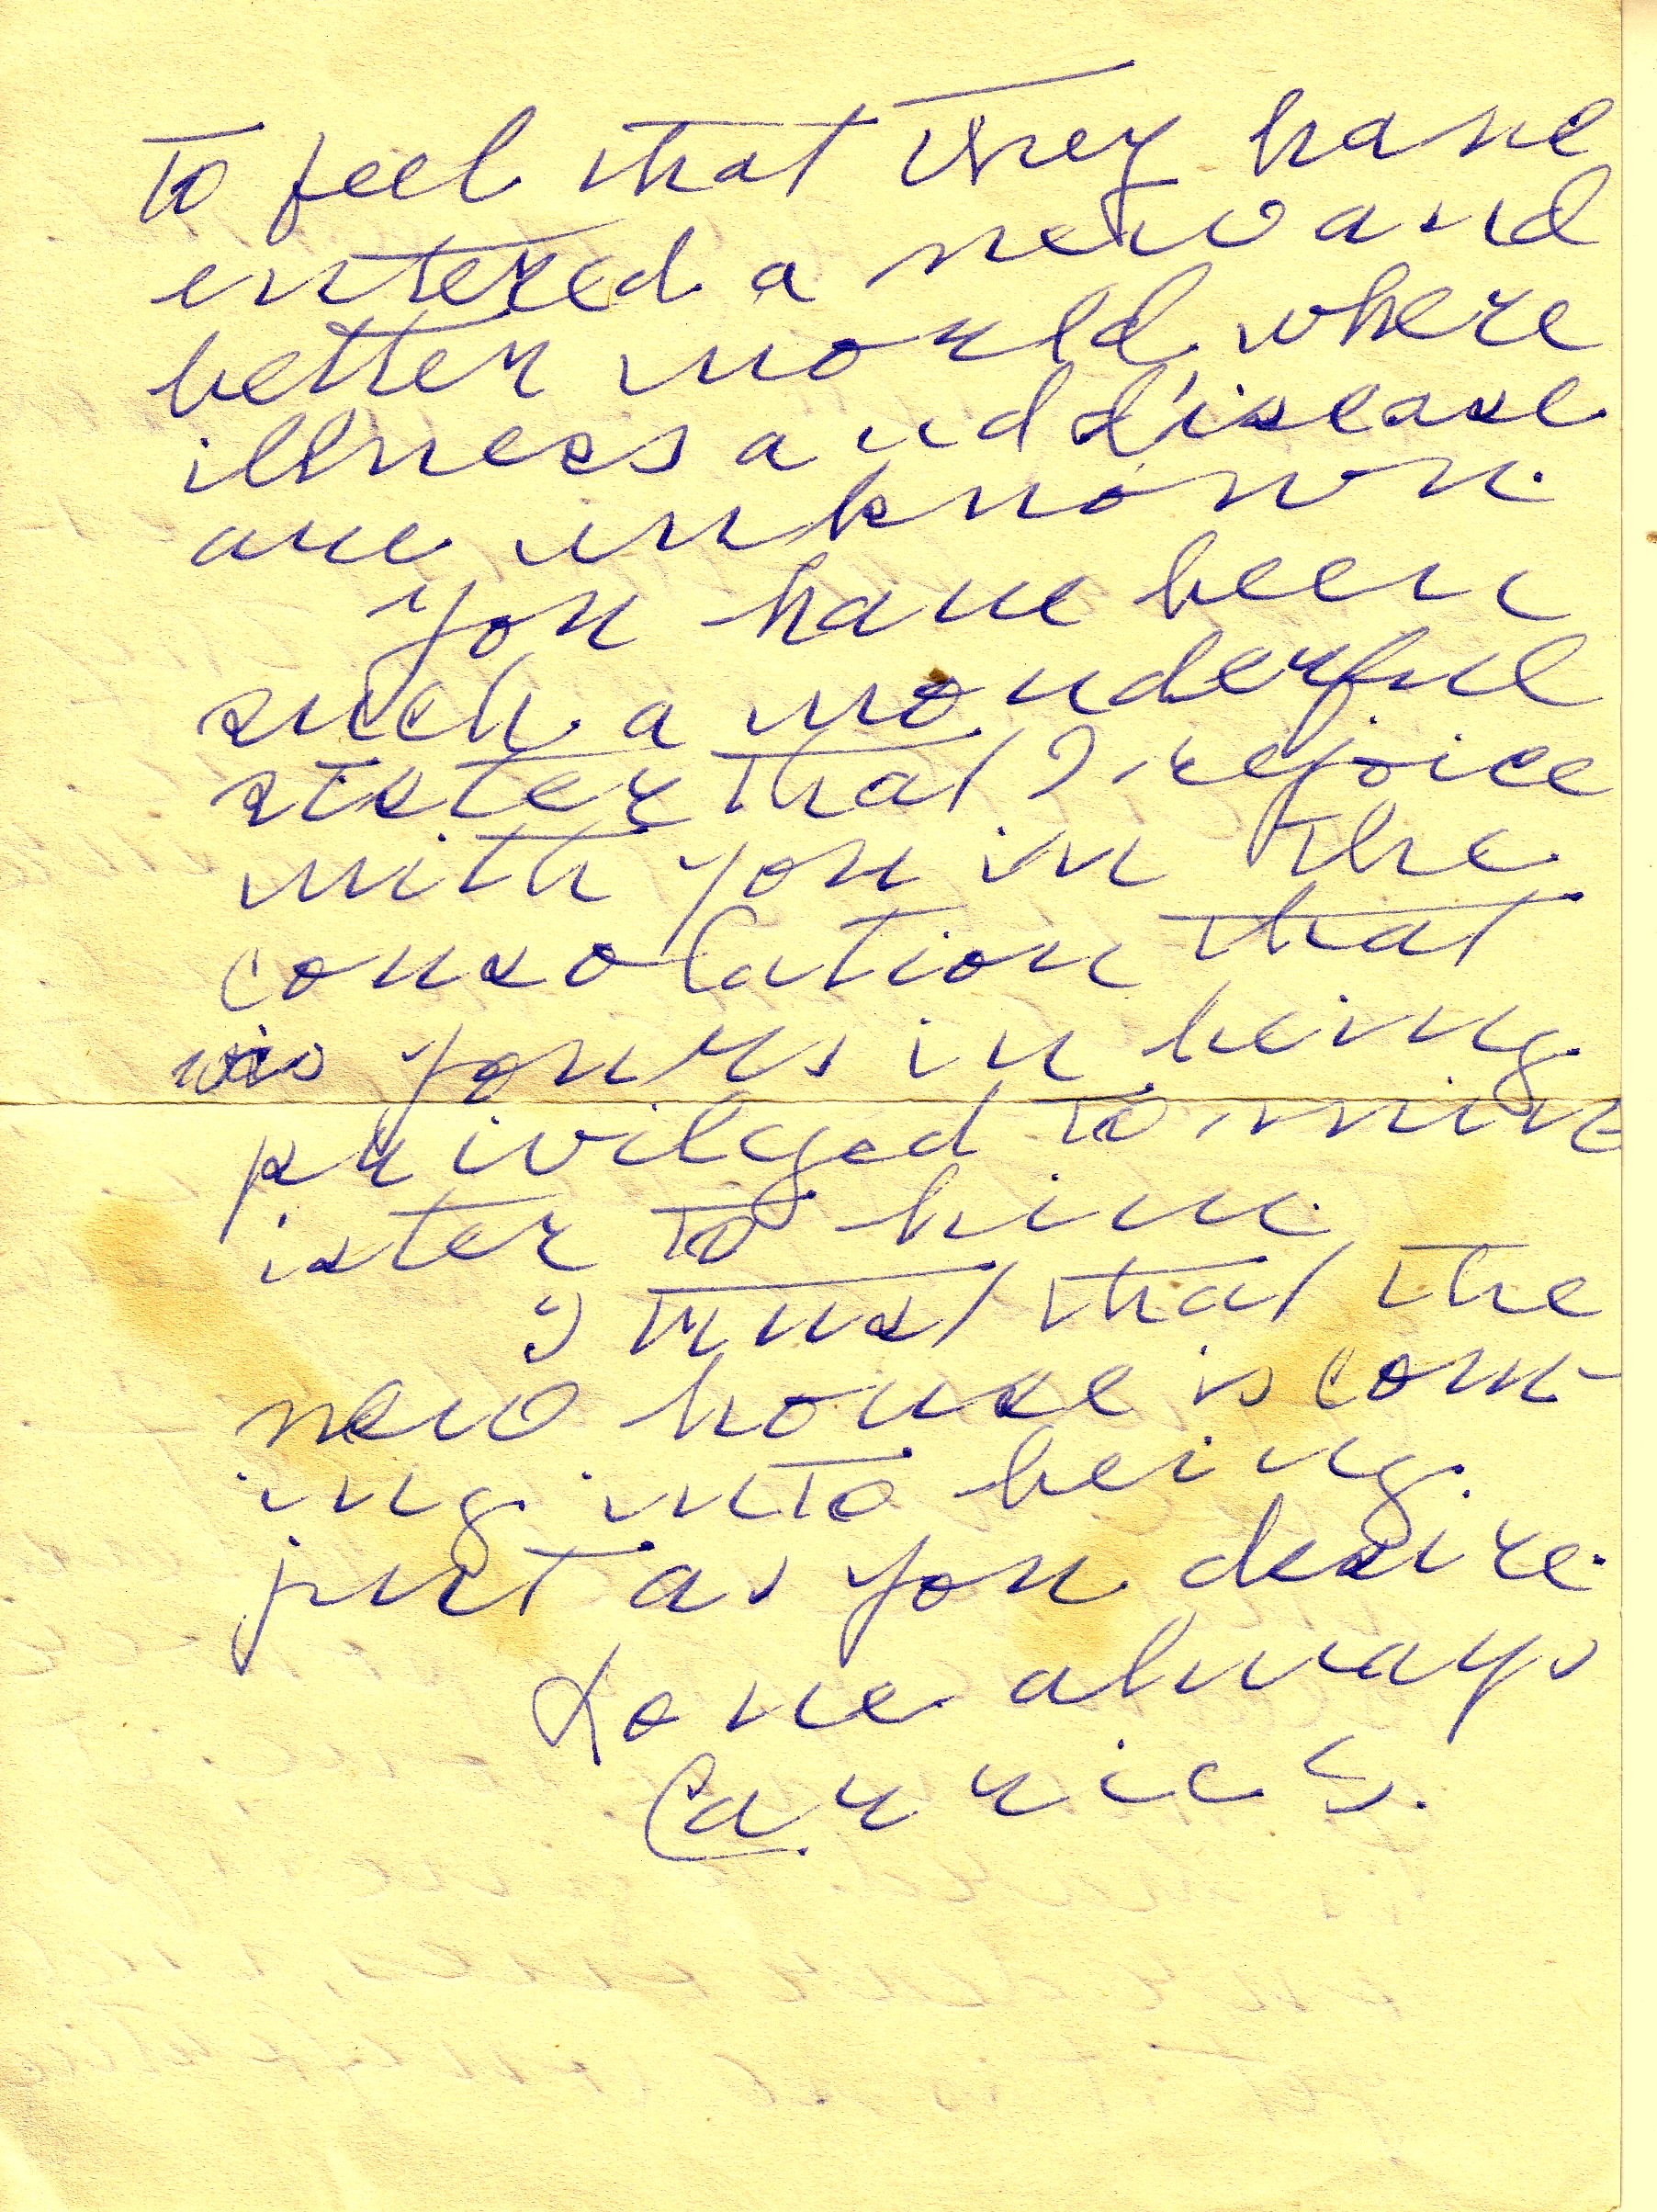 to feel that they have
entered a new and
better world where
illness and disease
are unknown.
You have been
such a wonderful
sister that I rejoice
with you in the
consolation that
is yours in being
privilged to min
ister to him
I trust that the
new house is com-
ing into being.
just as you desire.
Love always
Carrie S.